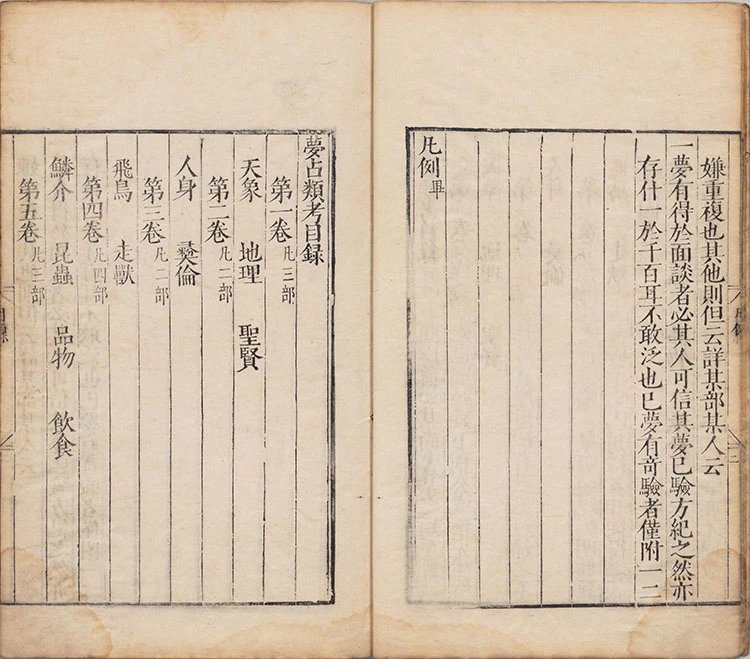 嫌重複也其他則但云詳某部某人云
一夢有得於面談者必其人可信其夢已驗方紀之然亦
存什一於千百耳不敢泛也已夢有竒驗者僅附一二
凡例畢
夢占類考目録
第一卷凡三部
天象 地理 聖賢
第二卷凡二部
人身 彜倫
第三卷凡二部
飛鳥 走獸
第四卷凡四部
鱗介 昆蟲 品物 飲食
第五卷凡三部